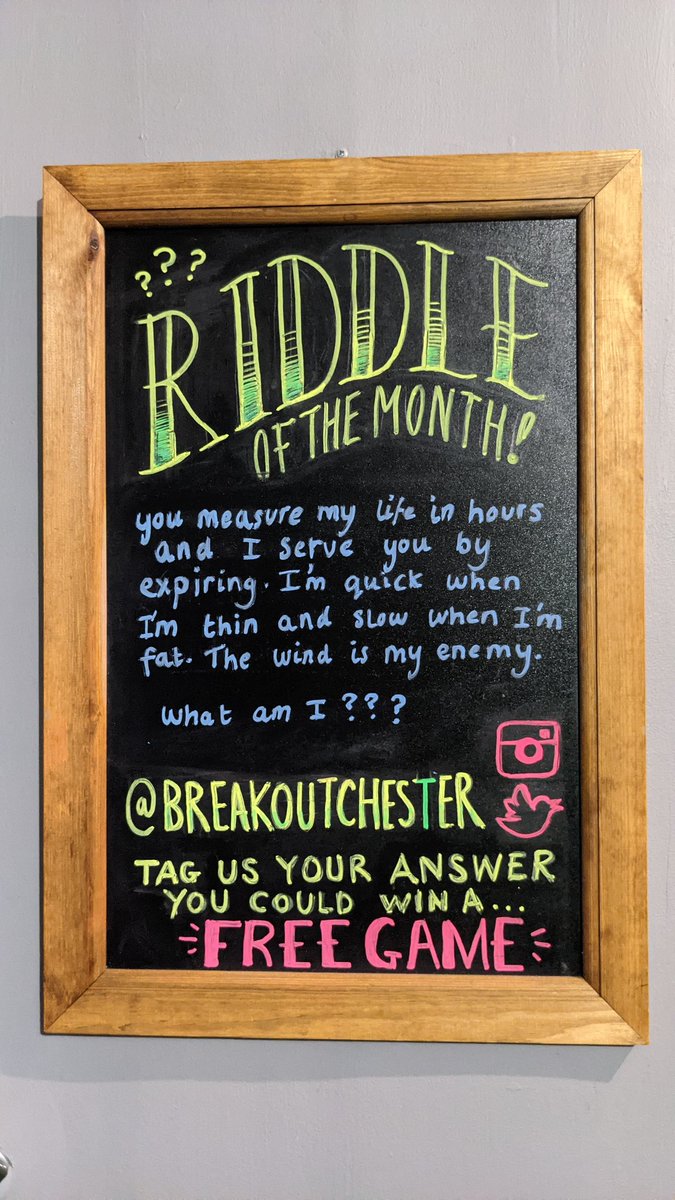 ???
RIDDLE
OF THE MONTH!
you measure my life in hours
and I serve you by
expiring. I'm quick when
I'm thin and slow when I'm
fat. The wind is my enemy.
What am I ???
@BREAKOUTCHESTER
TAG US YOUR ANSWER
YOU COULD WIN A...
FREE GAME